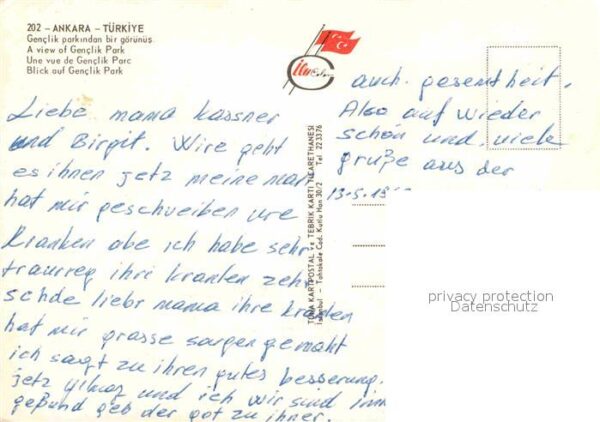 202 – ANKARA – TÜRKİYE
Gençlik parkından bir görünüş
A view of Gençlik Park
Une vue de Gençlik Parc
Blick auf Gençlik Park
Liebe mama Kassner
und Birgit. Wire geht
es ihnen jetz meine man
hat mir geschueiben ure
Kranken abe ich habe sehr
traurreg ihri kranken zehr
schde liebr mama ihre kranken
hat mir grasse sorgen gemaht
ich sagt zu ihren gutes besserung.
jetz Yilmaz und ich wir sind imm
gesund geb der got zu ihner.
auch gesentheit.
Also auf wieder
schon und viele
grüße aus der
13-5-19
TUNA KARTPOSTAL ve TEBRİK KARTI TİCARETHANESİ
İstanbul - Tahtakale Cad. Kutlu Han 30/2 Tel 223376
privacy protection
Datenschutz